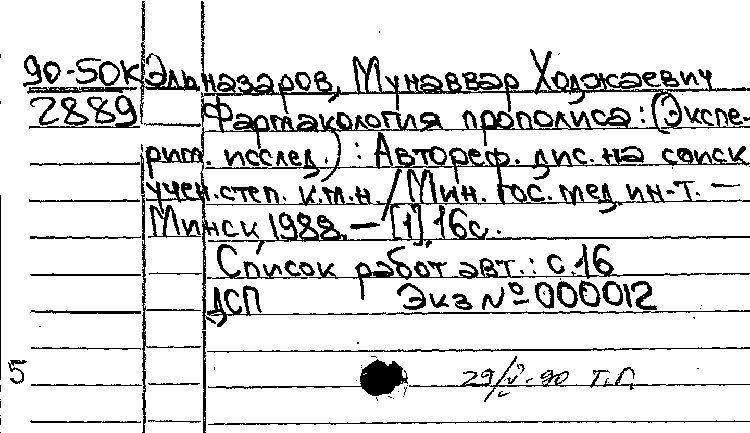 90-50К Эльназаров, Мунаввар Ходжаевич
2889 Фармакология прополиса: (Экспе-
рим. исслед.) : Автореф. дис. на соиск
учен. степ. к.м.н. / Мин. гос. мед. ин-т. —
Минск, 1988. — [1], 16с.
Список работ авт.: с. 16
ДСП Экз № 000012
5 29/V-90 Т.П.